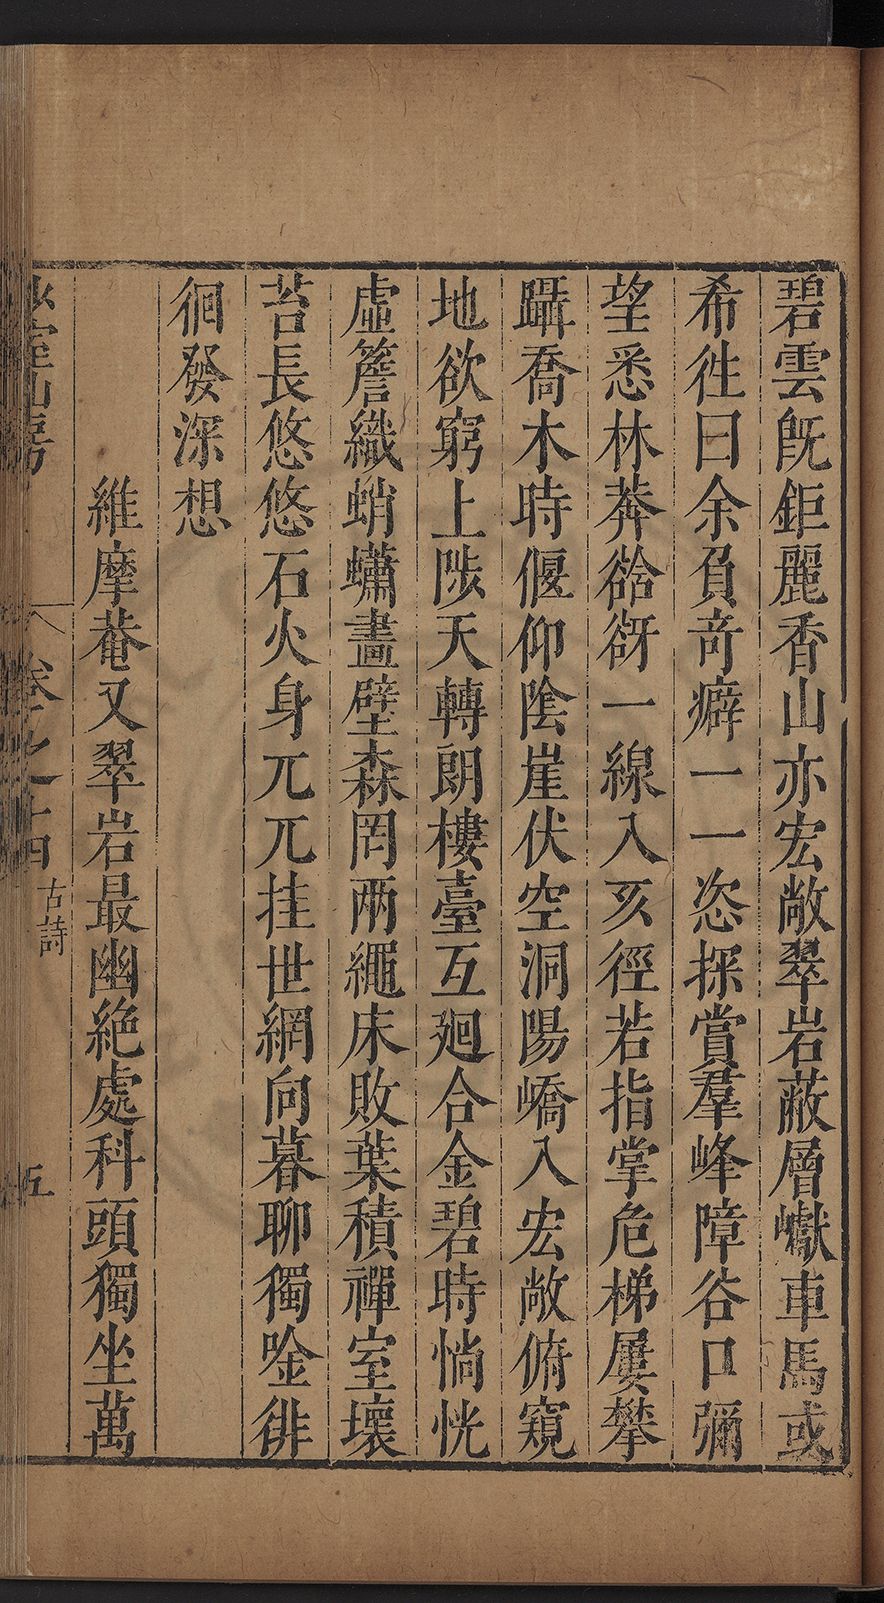 碧雲旣鉅麗香山亦宏敞翠岩蔽層巘車馬或
希徃曰余負竒癖一一恣探賞羣峰障谷口彌
望悉林莽谽谺一線入亥徑若指掌危梯屢攀
躡喬木時偃仰陰崖伏空洞陽嶠入宏敞俯窺
地欲窮上陟天轉朗樓臺互廻合金碧時惝恍
虛簷織蛸蠨畫壁森罔兩繩床敗葉積禪室壞
苔長悠悠石火身兀兀挂世網向暮聊獨唫徘
徊發深想
維摩菴又翠岩最幽絶處科頭獨坐萬
室山房
卷之十四
古詩
五